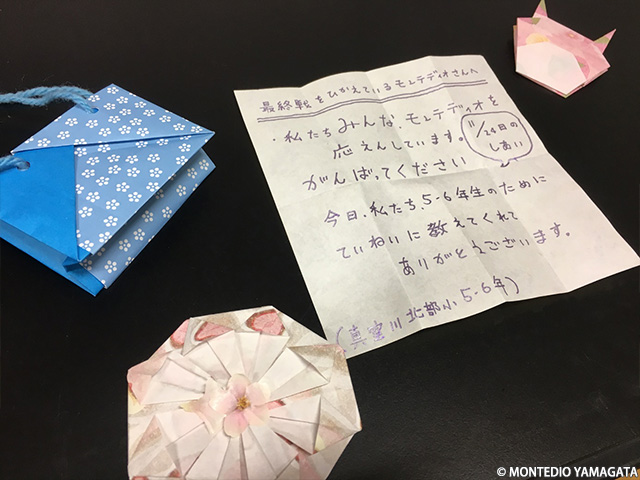 最終戦をひかえているモンテディオさんへ
・私たちみんな、モンテディオを
応えんしています。
11/24日の
しあい
がんばってください
今日、私たち5・6年生のために
ていねいに教えてくれて
ありがとうございます。
(真室川北部小5・6年)
© MONTEDIO YAMAGATA